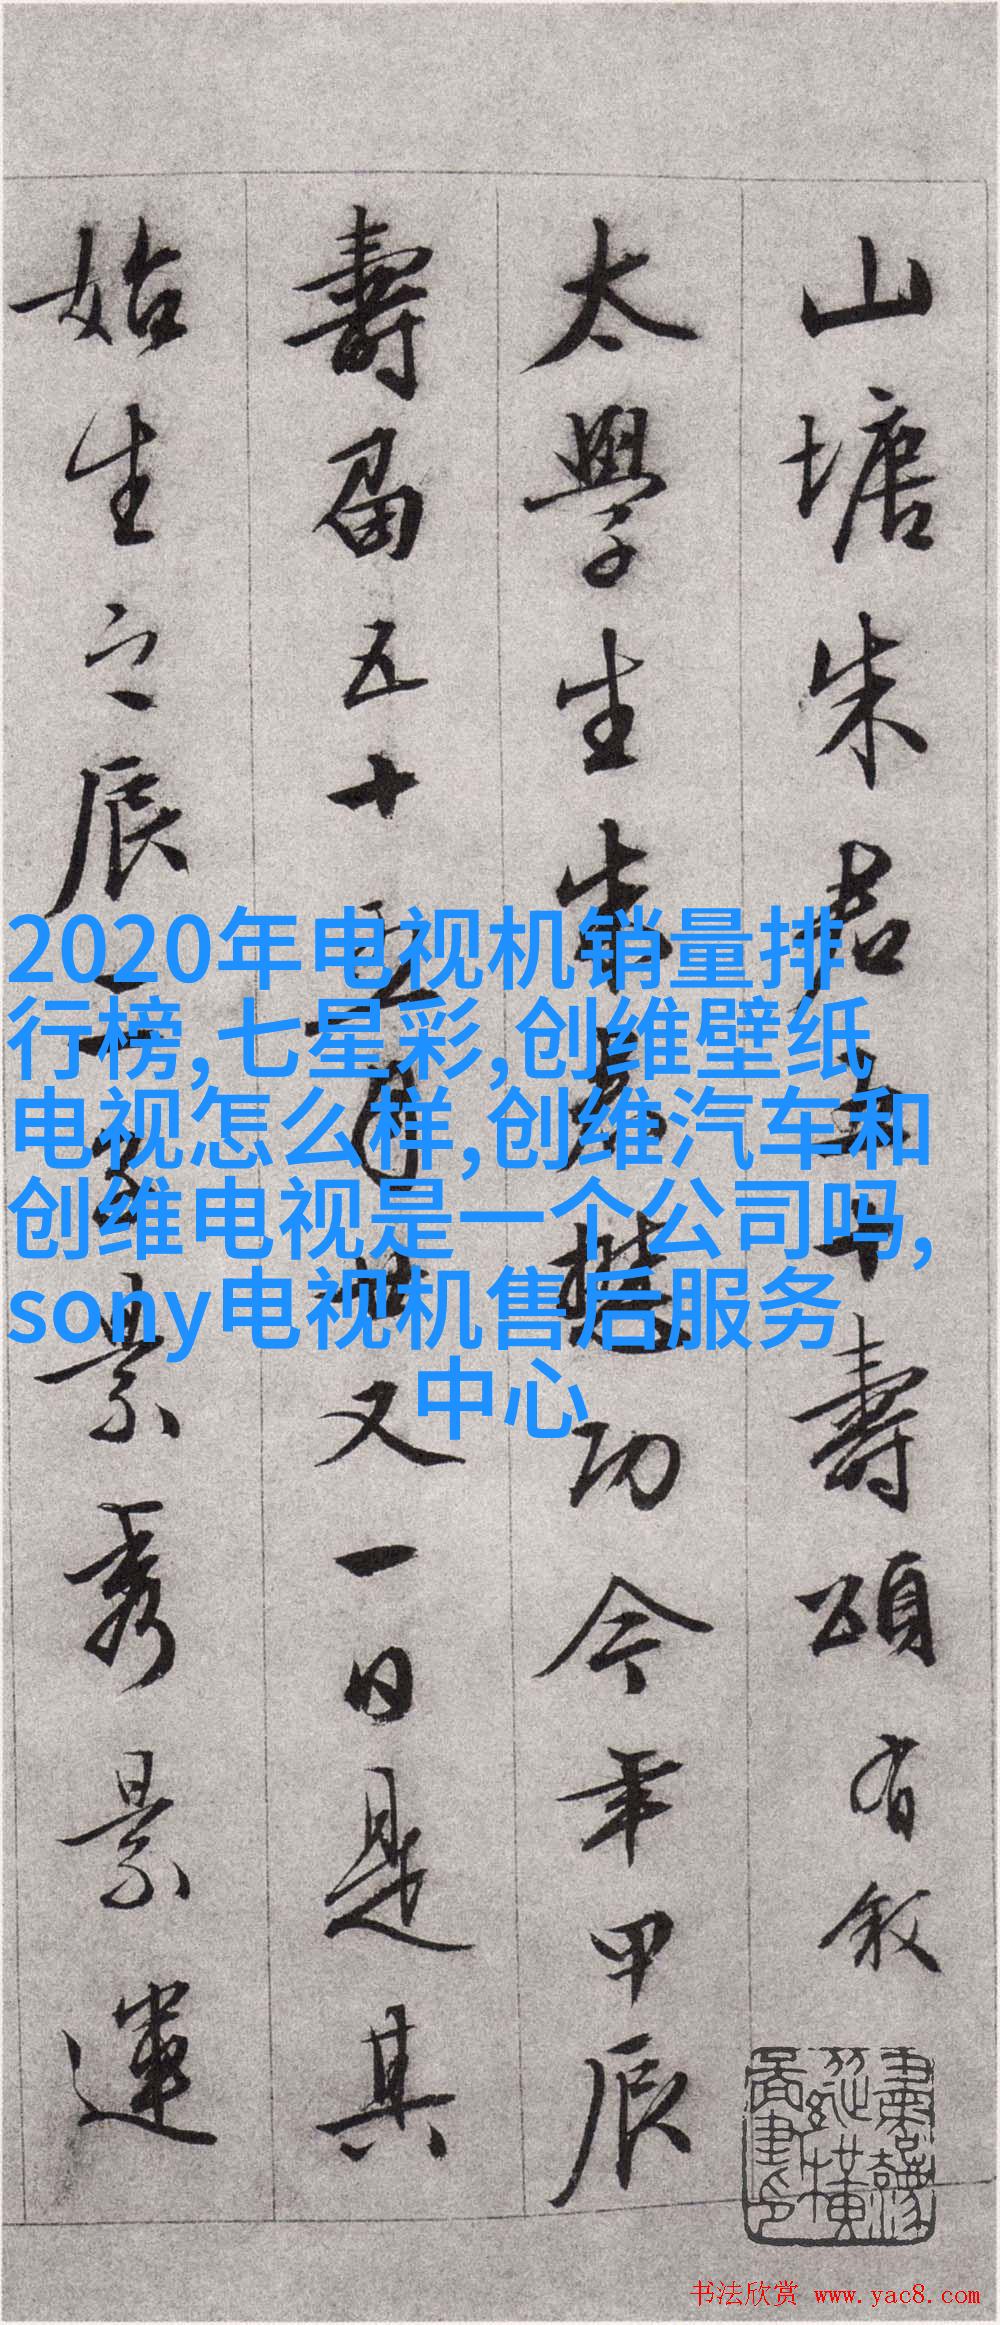 山塘朱君五十壽頌有敘
太學生朱君懋功今年甲辰
壽屆五十五月廿又一日是其
始生之辰景秀景運
2020年电视机销量排
行榜,七星彩,创维壁纸
电视怎么样,创维汽车和
创维电视是一个公司吗,
sony电视机售后服务
中心
书法欣赏 www.yac8.com